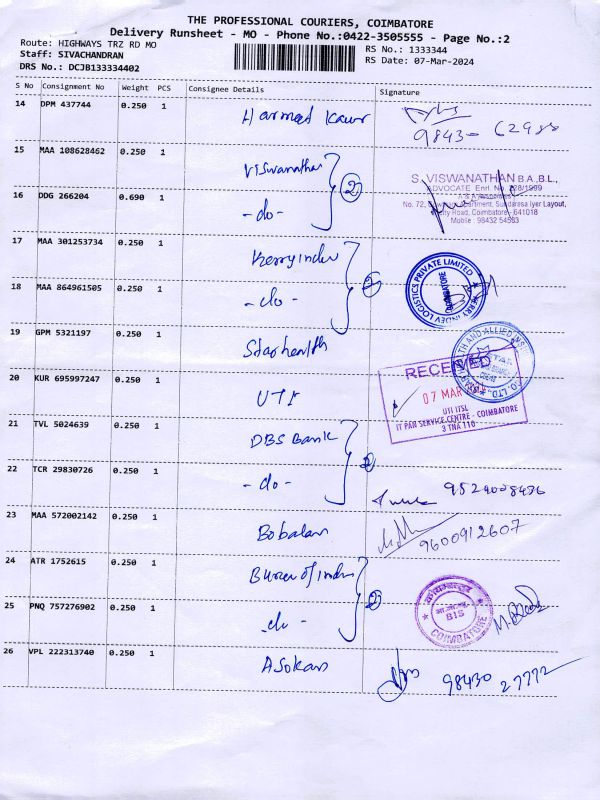 THE PROFESSIONAL COURIERS, COIMBATORE
Delivery Runsheet - MO - Phone No.:0422-3505555 - Page No.:2
Route: HIGHWAYS TRZ RD MO
RS No.: 1333344
Staff: SIVACHANDRAN
RS Date: 07-Mar-2024
DRS No.: DCJB133334402
S No Consignment No Weight PCS Consignee Details Signature
14 DPM 437744 0.250 1 Harmeet Kaur
98430 62988
15 MAA 108628462 0.250 1 Viswanathan
S. VISWANATHAN B.A.,B.L.,
ADVOCATE Enrl. No. 228/1999
16 DDG 266204 0.690 1 -do- 2
No. 72, Apartment, Sundaresa Iyer Layout,
Road, Coimbatore - 641018
Mobile : 98432 54553
17 MAA 301253734 0.250 1 Kerry Indev
KERRY INDEV LOGISTICS PRIVATE LIMITED
COIMBATORE
18 MAA 864961505 0.250 1 -do- 2
19 GPM 5321197 0.250 1 Starhealth
STAR HEALTH AND ALLIED CO. LTD.
20 KUR 695997247 0.250 1 UTI
RECEIVED
07 MAR
UTI ITSL
IT PAN SERVICE CENTRE - COIMBATORE
3 TNA 110
21 TVL 5024639 0.250 1 DBS Bank
22 TCR 29830726 0.250 1 -do- 2
9524008496
23 MAA 572002142 0.250 1 Bobalan
9600912607
24 ATR 1752615 0.250 1 Bureau of India
BIS
COIMBATORE
25 PNQ 757276902 0.250 1 -do- 2
26 VPL 222313740 0.250 1 Asokan
98430 27772